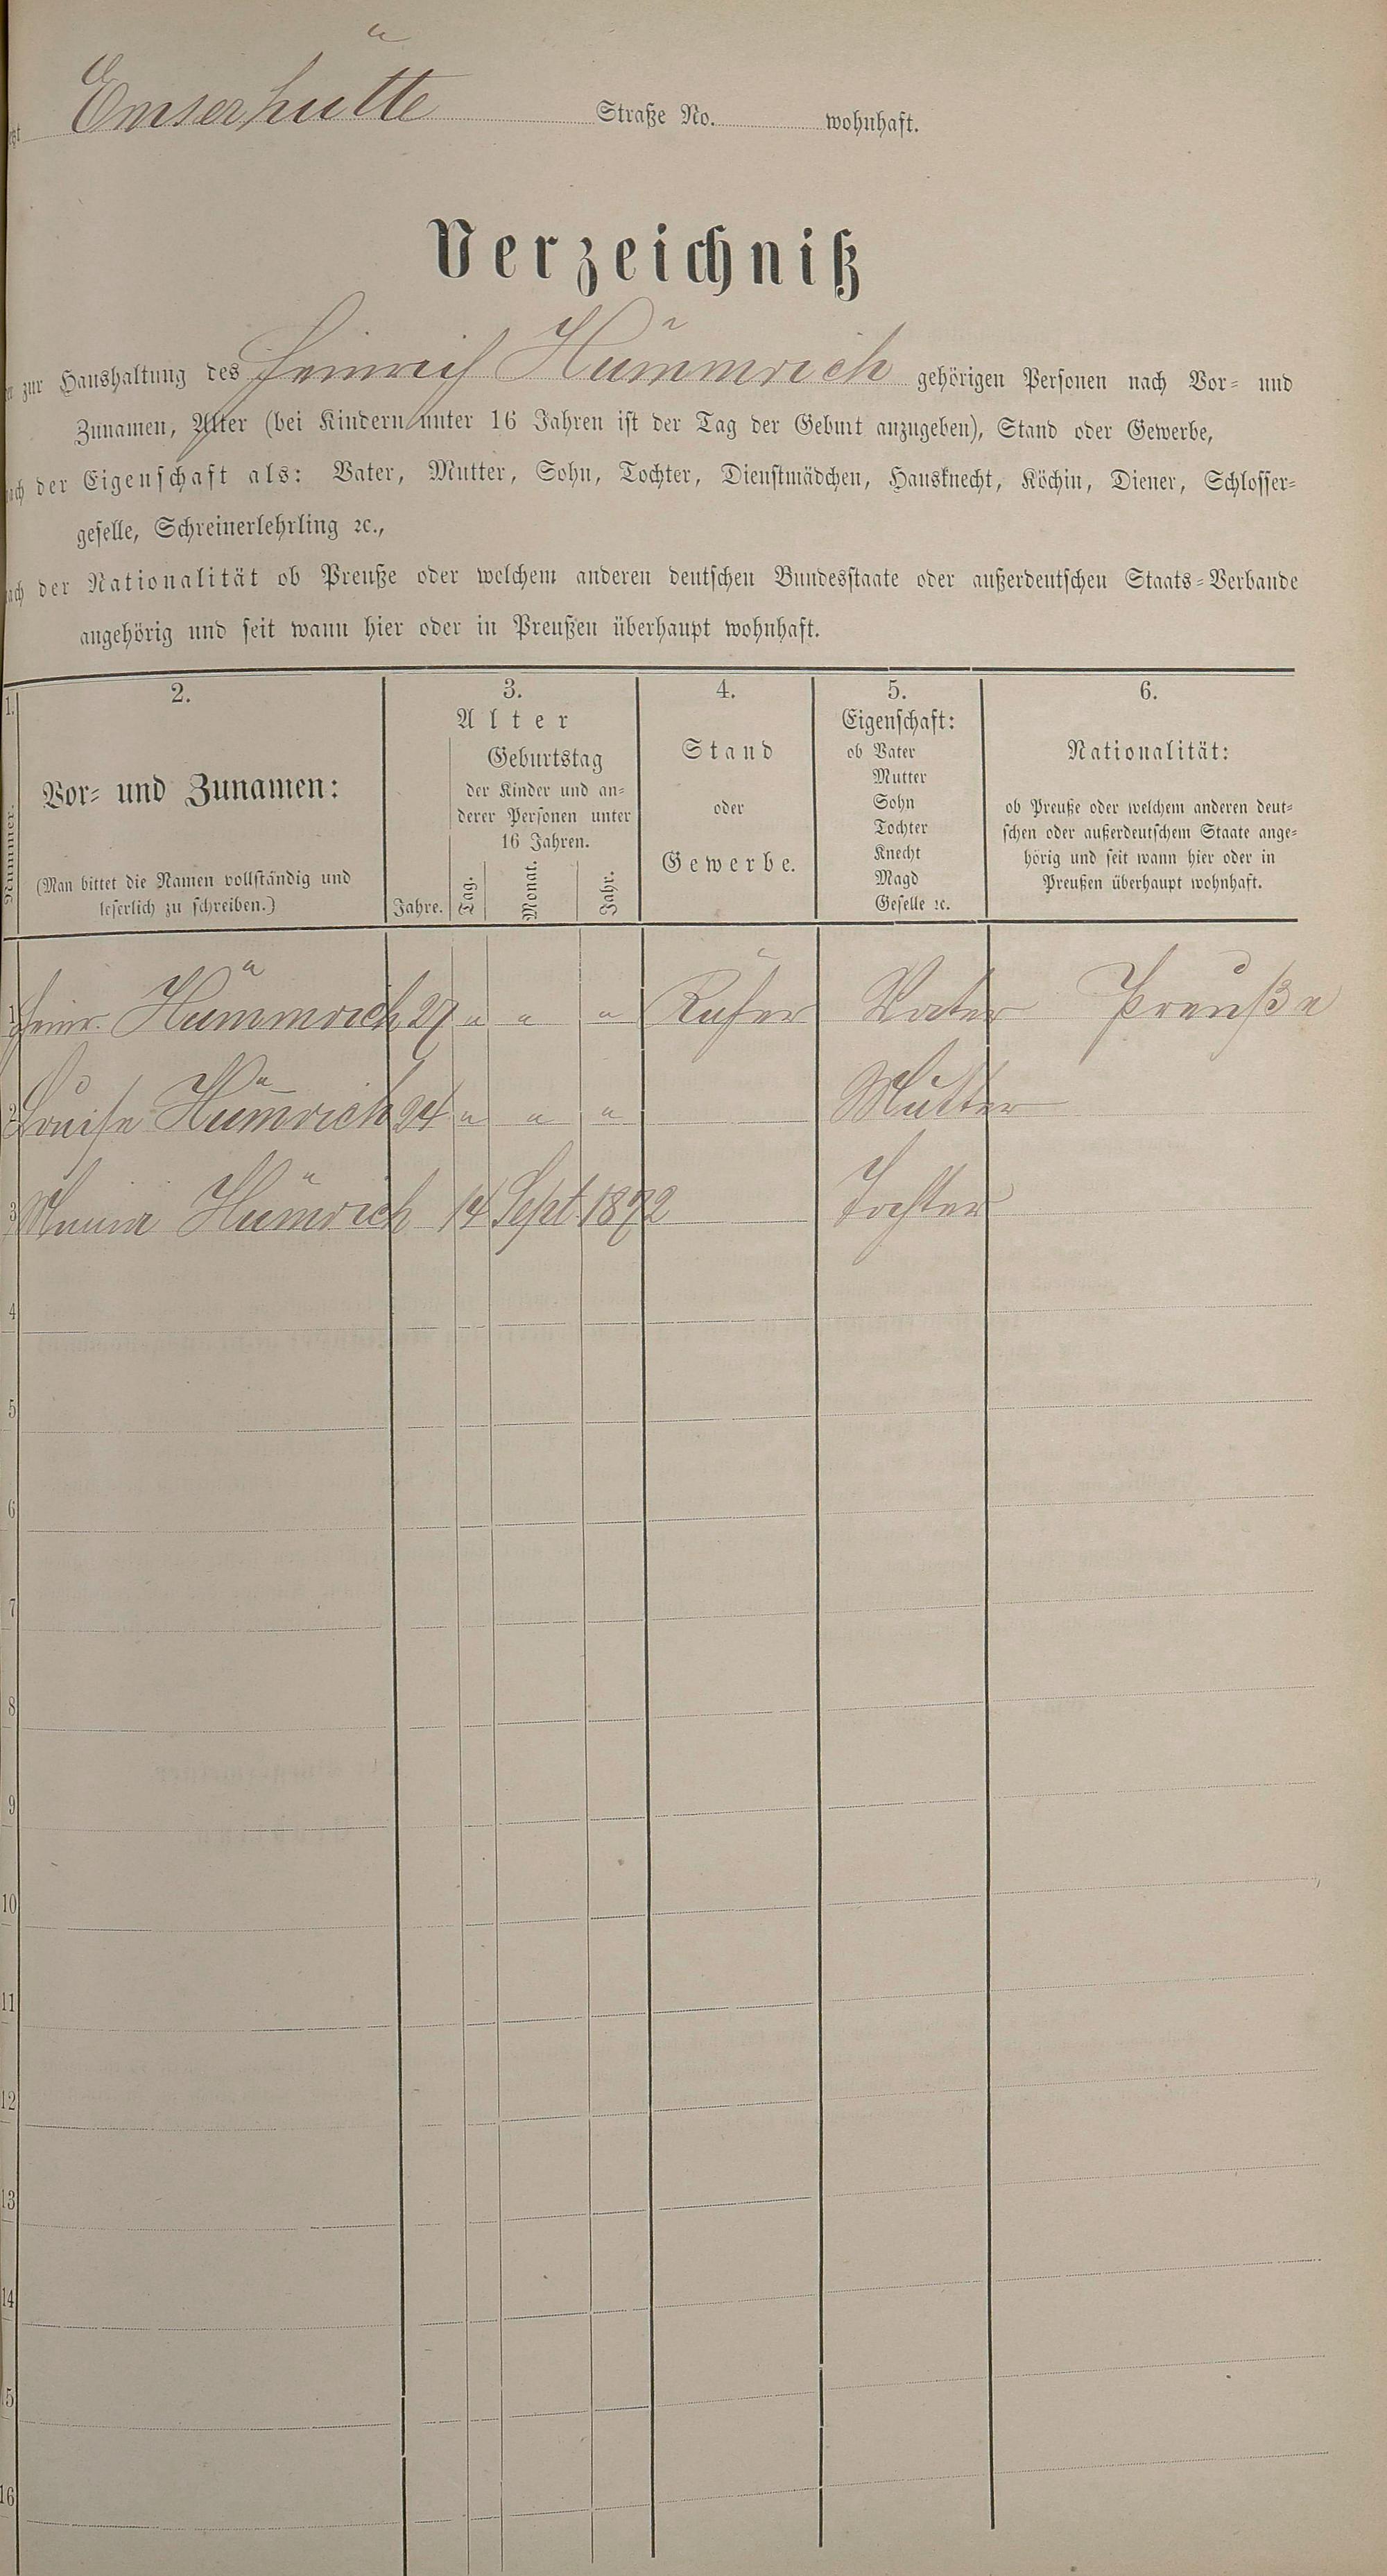 Emserhütte Straße No. wohnhaft.
Verzeichniß
zur Haushaltung des Heinrich Hümmrich gehörigen Personen nach Vor- und
Zunamen, Alter (bei Kindern unter 16 Jahren ist der Tag der Geburt anzugeben), Stand oder Gewerbe,
nach der Eigenschaft als: Vater, Mutter, Sohn, Tochter, Dienstmädchen, Hausknecht, Köchin, Diener, Schlosser-
geselle, Schreinerlehrling ꝛc.,
nach der Nationalität ob Preuße oder welchem anderen deutschen Bundesstaate oder außerdeutschen Staats-Verbande
angehörig und seit wann hier oder in Preußen überhaupt wohnhaft.
1. 2. 3. 4. 5. 6.
Nummer.
Vor- und Zunamen:
(Man bittet die Namen vollständig und
leserlich zu schreiben.)
Alter
Jahre.
Geburtstag
der Kinder und an-
derer Personen unter
16 Jahren.
Tag. Monat. Jahr.
Stand
oder
Gewerbe.
Eigenschaft:
ob Vater
Mutter
Sohn
Tochter
Knecht
Magd
Geselle ꝛc.
Nationalität:
ob Preuße oder welchem anderen deut-
schen oder außerdeutschem Staate ange-
hörig und seit wann hier oder in
Preußen überhaupt wohnhaft.
1 Heinr. Hümmrich 27 " " " Küfer Vater Preuße
2 Louise Hümrich 24 " " " Mutter
3 Hümrich 14 Sept. 1872 Tochter
4
5
6
7
8
9
10
11
12
13
14
15
16